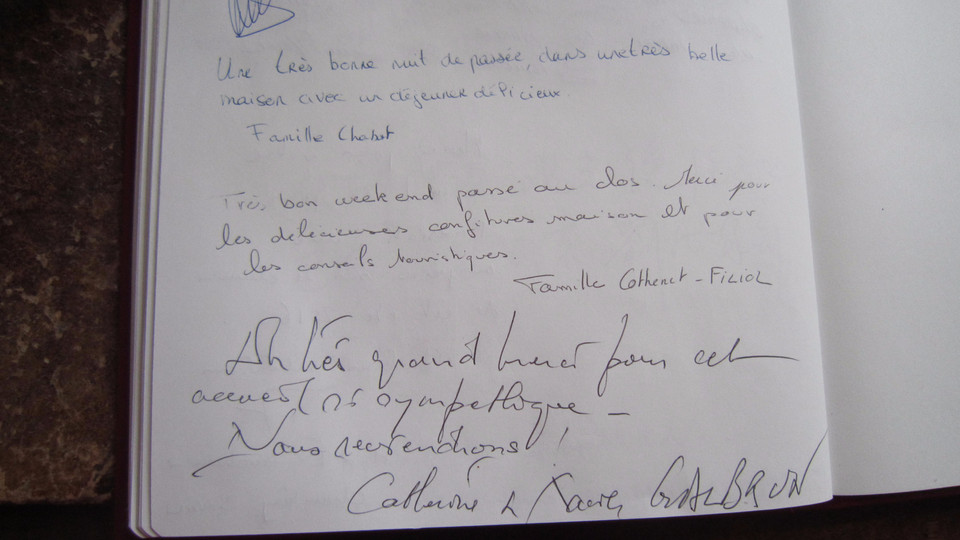 Une très bonne nuit de passée, dans une très belle
maison avec un déjeuner délicieux.
Famille Chabot
Très bon weekend passé au clos. Merci pour
les délicieuses confitures maison et pour
les conseils touristiques.
Famille Cothenet - FILIOL
Un très grand merci pour cet
accueil si sympathique -
Nous reviendrons !
Catherine & Xavier GALBRUN